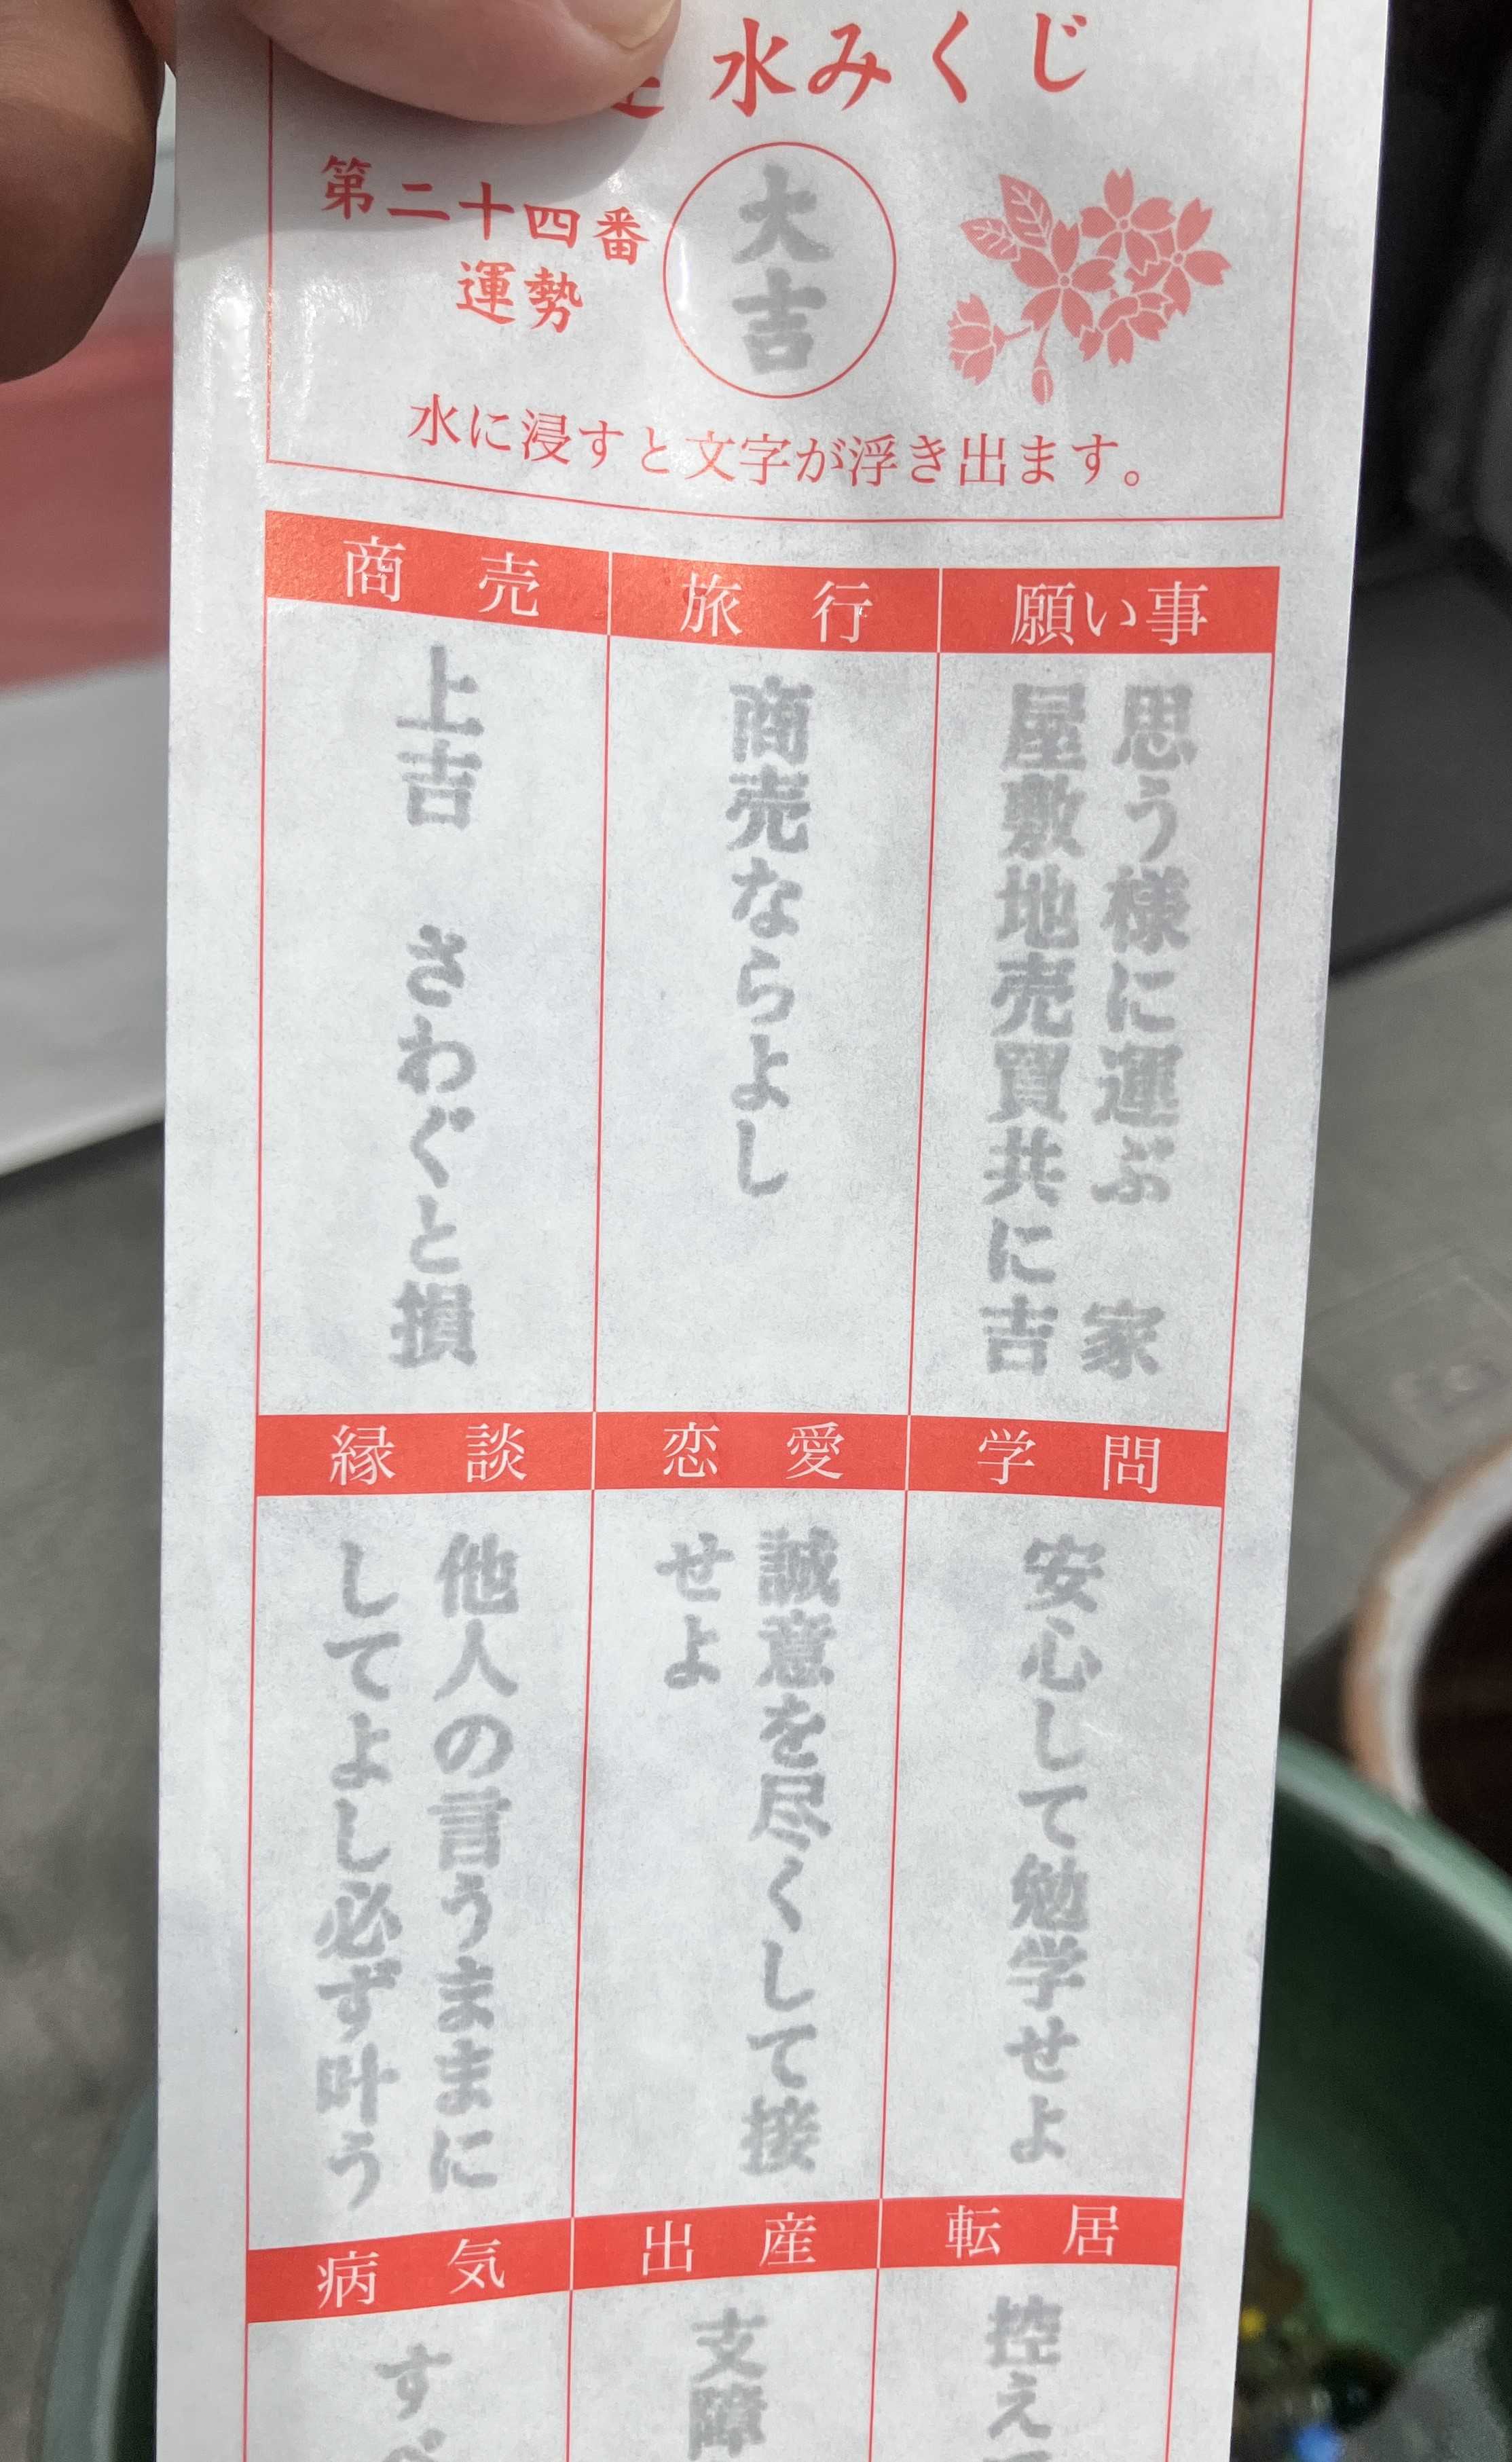 水みくじ
第二十四番
運勢
大吉
水に浸すと文字が浮き出ます。
願い事
思う様に運ぶ　家
屋敷地売買共に吉
旅行
商売ならよし
商売
上吉　さわぐと損
学問
安心して勉学せよ
恋愛
誠意を尽くして接
せよ
縁談
他人の言うままに
してよし必ず叶う
転居
控え
出産
支障
病気
す